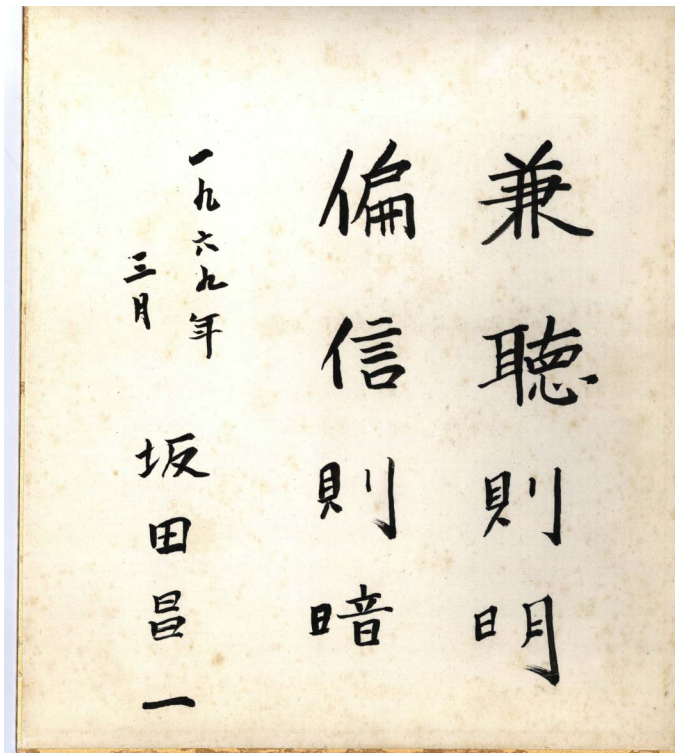 兼聴則明
偏信則暗
一九六九年
三月
坂田昌一